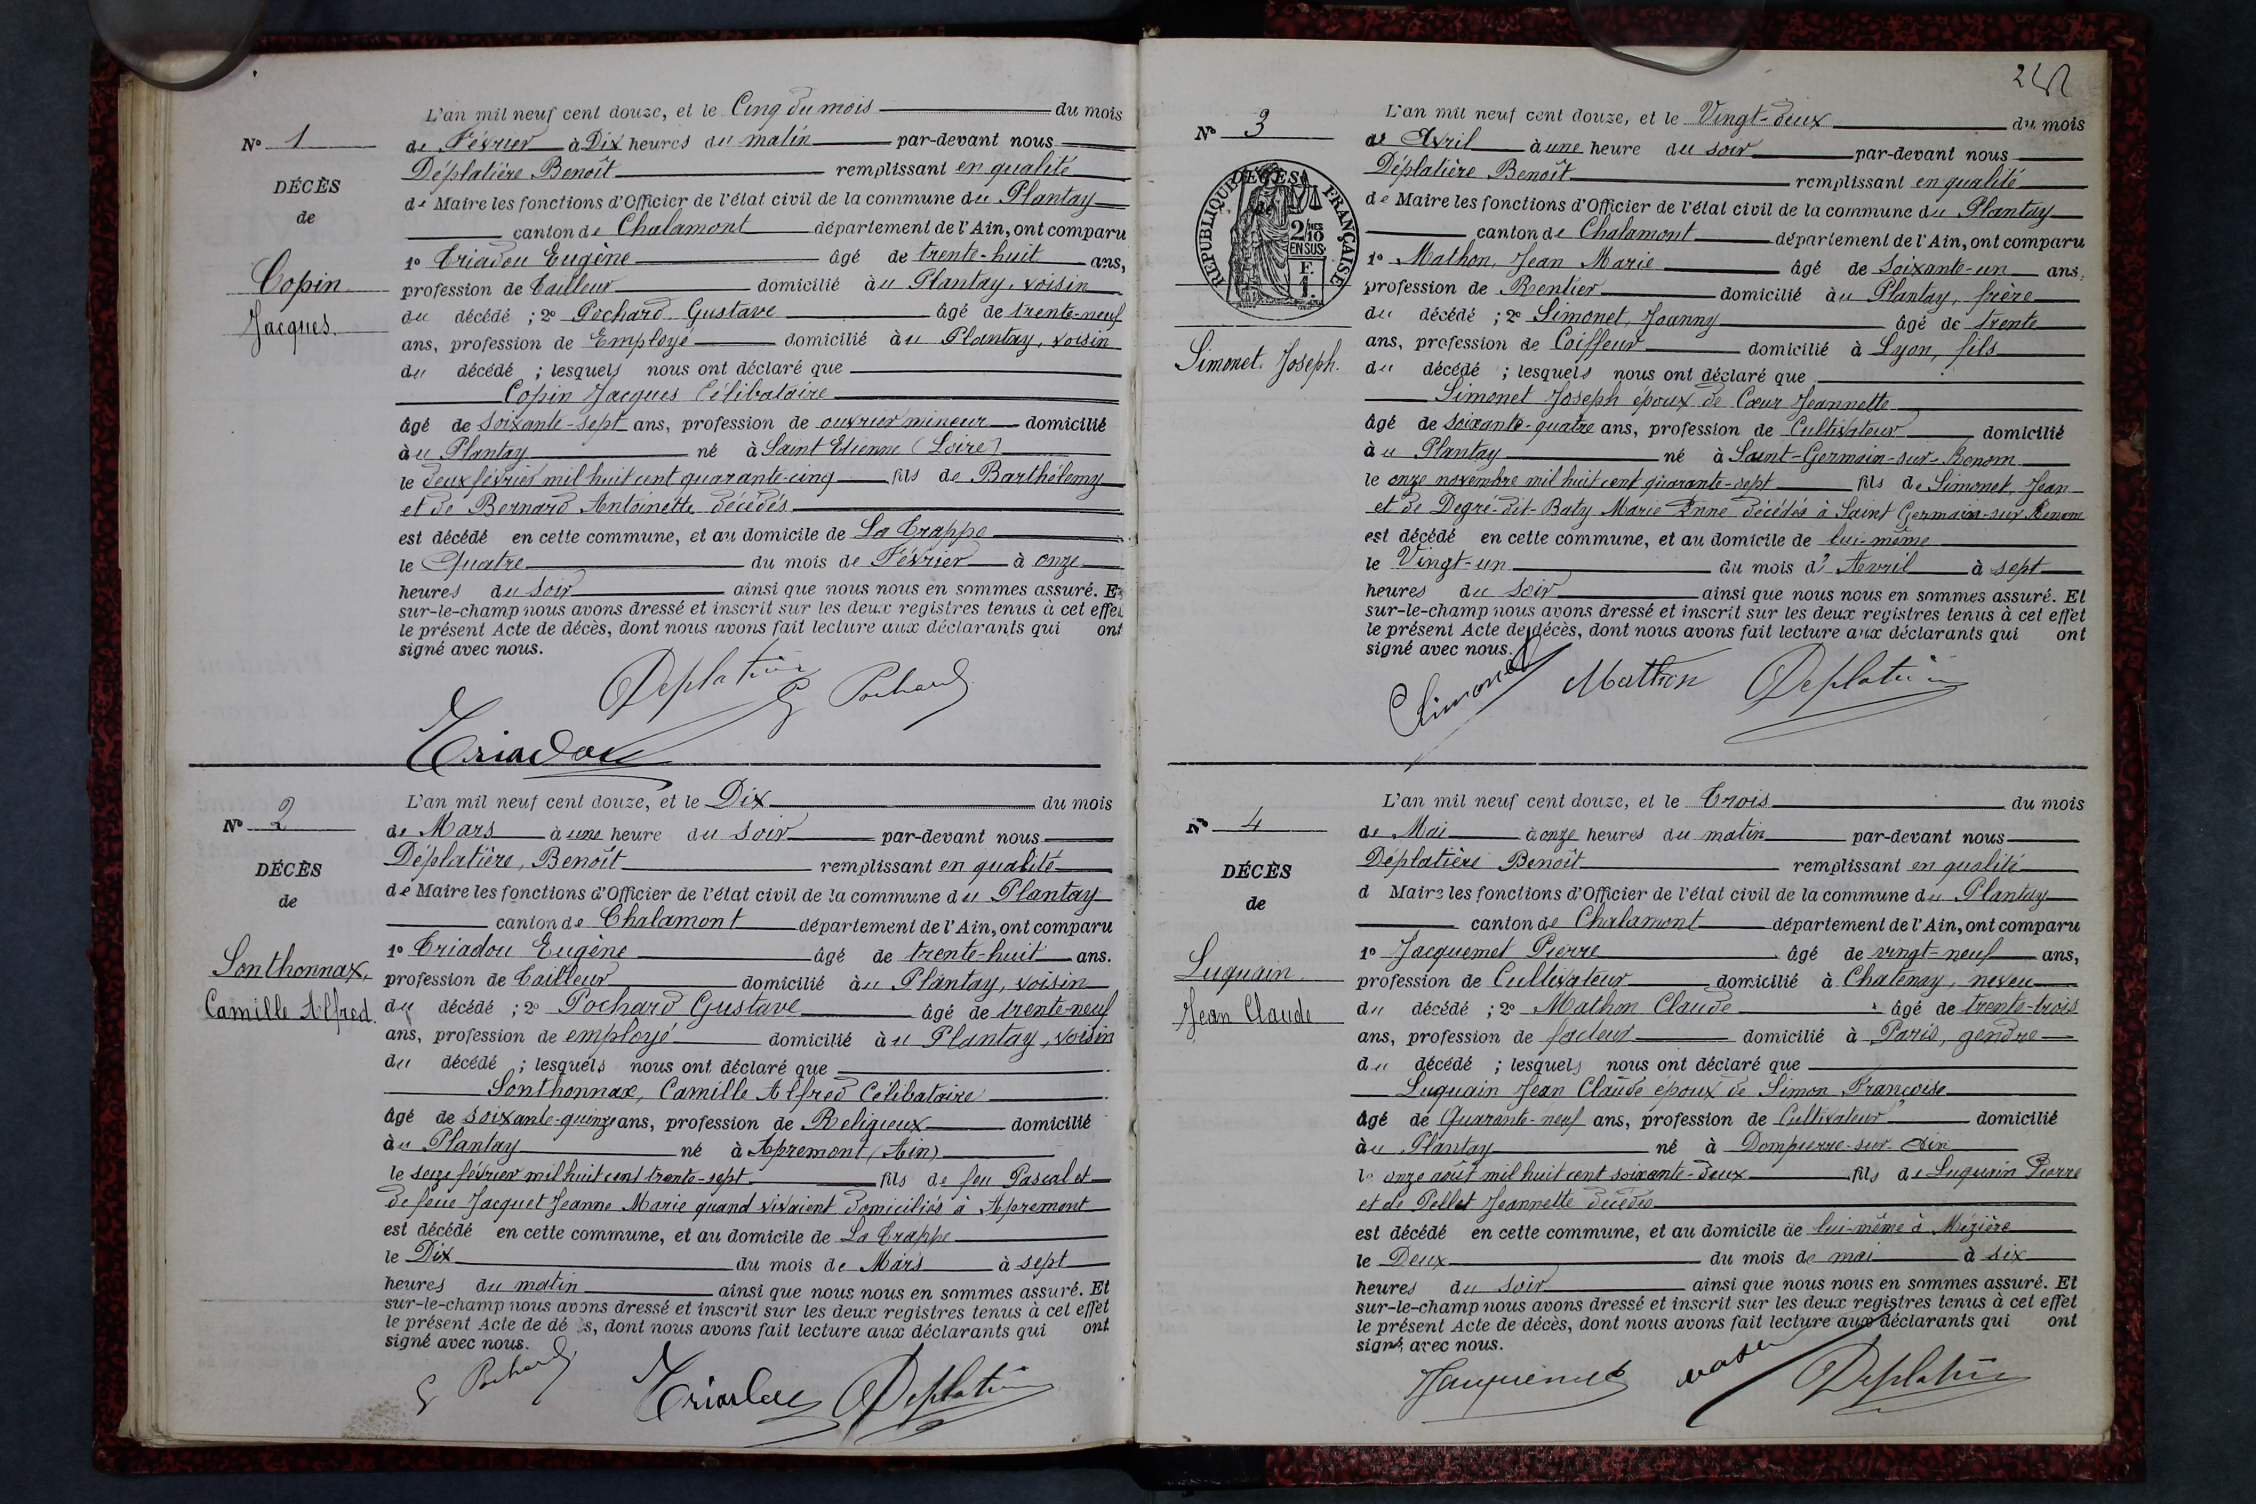 L'an mil neuf cent douze, et le Cinq du mois du mois
N° 1
de Février à Dix heures du matin par-devant nous
Déplatière Benoît remplissant en qualité
DÉCÈS
de Maire les fonctions d'Officier de l'état civil de la commune du Plantay
de
canton de Chalamont département de l'Ain, ont comparu
1° Criadou Eugène âgé de trente-huit ans,
Copin
profession de Tailleur domicilié au Plantay, voisin
Jacques.
du décédé ; 2° Pochard Gustave âgé de trente-neuf
ans, profession de Employé domicilié au Plantay, voisin
du décédé ; lesquels nous ont déclaré que
Copin Jacques Célibataire
âgé de soixante-sept ans, profession de ouvrier mineur domicilié
au Plantay né à Saint Etienne (Loire)
le deux février mil huit cent quarante-cinq fils de Barthélemy
et de Bernard Antoinette décédés
est décédé en cette commune, et au domicile de La Trappe
le Quatre du mois de Février à onze
heures du soir ainsi que nous nous en sommes assuré. Et
sur-le-champ nous avons dressé et inscrit sur les deux registres tenus à cet effet
le présent Acte de décès, dont nous avons fait lecture aux déclarants qui ont
signé avec nous.
Deplatière G Pochard
Criadou
L'an mil neuf cent douze, et le Dix du mois
N° 2
de Mars à une heure du soir par-devant nous
Déplatière, Benoît remplissant en qualité
DÉCÈS
de Maire les fonctions d'Officier de l'état civil de la commune du Plantay
de
canton de Chalamont département de l'Ain, ont comparu
1° Criadou Eugène âgé de trente-huit ans.
Sonthonnax,
profession de Tailleur domicilié au Plantay, voisin
Camille Alfred.
du décédé ; 2° Pochard Gustave âgé de trente-neuf
ans, profession de employé domicilié au Plantay, voisin
du décédé ; lesquels nous ont déclaré que
Sonthonnax, Camille Alfred Célibataire
âgé de soixante-quinze ans, profession de Religieux domicilié
au Plantay né à Apremont (Ain)
le seize février mil huit cent trente-sept fils de feu Pascal et
de feue Jacquet Jeanne Marie quand vivaient domiciliés à Apremont
est décédé en cette commune, et au domicile de La Trappe
le Dix du mois de Mars à sept
heures du matin ainsi que nous nous en sommes assuré. Et
sur-le-champ nous avons dressé et inscrit sur les deux registres tenus à cet effet
le présent Acte de dé s, dont nous avons fait lecture aux déclarants qui ont
signé avec nous.
G Pochard Criadou Deplatière
L'an mil neuf cent douze, et le Vingt-deux du mois
N° 3
de Avril à une heure du soir par-devant nous
Déplatière Benoît remplissant en qualité
DÉCÈS
RÉPUBLIQUE FRANÇAISE
2/10 EN SUS
de Maire les fonctions d'Officier de l'état civil de la commune du Plantay
canton de Chalamont département de l'Ain, ont comparu
1° Mathon, Jean Marie âgé de Soixante-un ans,
profession de Rentier domicilié au Plantay, frère
du décédé ; 2° Simonet, Joanny âgé de trente
ans, profession de Coiffeur domicilié à Lyon, fils
Simonet Joseph.
du décédé ; lesquels nous ont déclaré que
Simonet Joseph époux de Cœur Jeannette
âgé de soixante-quatre ans, profession de Cultivateur domicilié
au Plantay né à Saint-Germain-sur-Renom
le onze novembre mil huit cent quarante-sept fils de Simonet, Jean
et de Degré-dit-Baty Marie Anne décédés à Saint Germain-sur Renom
est décédé en cette commune, et au domicile de lui-même
le Vingt-un du mois d'Avril à sept
heures du soir ainsi que nous nous en sommes assuré. Et
sur-le-champ nous avons dressé et inscrit sur les deux registres tenus à cet effet
le présent Acte de décès, dont nous avons fait lecture aux déclarants qui ont
signé avec nous.
Simonet Mathon Deplatière
L'an mil neuf cent douze, et le Trois du mois
N° 4
de Mai à onze heures du matin par-devant nous
Déplatière Benoît remplissant en qualité
DÉCÈS
d Maire les fonctions d'Officier de l'état civil de la commune du Plantay
de
canton de Chalamont département de l'Ain, ont comparu
1° Jacquemet Pierre âgé de vingt-neuf ans,
Luquain
profession de Cultivateur domicilié à Chatenay, neveu
Jean Claude
du décédé ; 2° Mathon Claude âgé de trente-trois
ans, profession de facteur domicilié à Paris, gendre
du décédé ; lesquels nous ont déclaré que
Luquain Jean Claude époux de Simon Françoise
âgé de Quarante-neuf ans, profession de Cultivateur domicilié
au Plantay né à Dompierre-sur-Ain
le onze août mil huit cent soixante-deux fils de Luquain Pierre
et de Pellet Jeannette décédés
est décédé en cette commune, et au domicile de lui-même à Mézière
le Deux du mois de mai à six
heures du soir ainsi que nous nous en sommes assuré. Et
sur-le-champ nous avons dressé et inscrit sur les deux registres tenus à cet effet
le présent Acte de décès, dont nous avons fait lecture aux déclarants qui ont
signé avec nous.
Jacquemet Deplatière